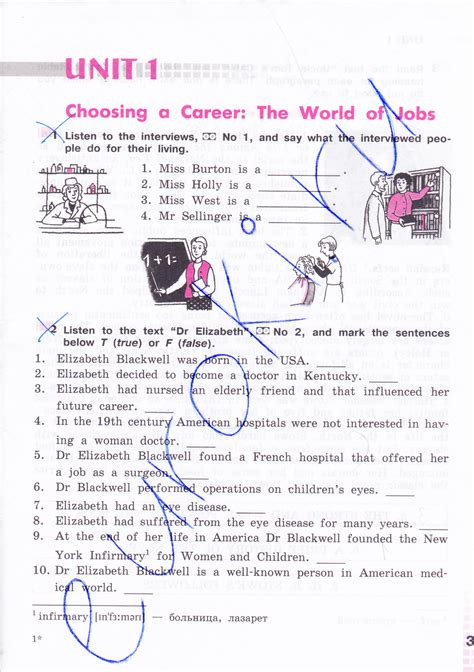 UNIT 1
Choosing a Career: The World of Jobs
1 Listen to the interviews, No 1, and say what the interviewed peo-
ple do for their living.
1. Miss Burton is a __________.
2. Miss Holly is a __________.
3. Miss West is a __________.
4. Mr Sellinger is a __________.
1+1=
2 Listen to the text "Dr Elizabeth", No 2, and mark the sentences
below T (true) or F (false).
1. Elizabeth Blackwell was born in the USA. ____
2. Elizabeth decided to become a doctor in Kentucky. ____
3. Elizabeth had nursed an elderly friend and that influenced her
future career. ____
4. In the 19th century American hospitals were not interested in hav-
ing a woman doctor. ____
5. Dr Elizabeth Blackwell found a French hospital that offered her
a job as a surgeon. ____
6. Dr Blackwell performed operations on children's eyes. ____
7. Elizabeth had an eye disease. ____
8. Elizabeth had suffered from the eye disease for many years. ____
9. At the end of her life in America Dr Blackwell founded the New
York Infirmary¹ for Women and Children. ____
10. Dr Elizabeth Blackwell is a well-known person in American med-
ical world. ____
¹ infirmary [ɪn'fɜ:mərɪ] — больница, лазарет
1*
3